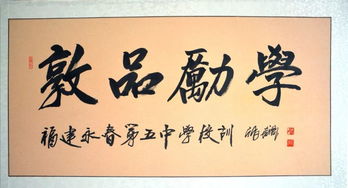 敦品勵學
福建永春第五中學校訓